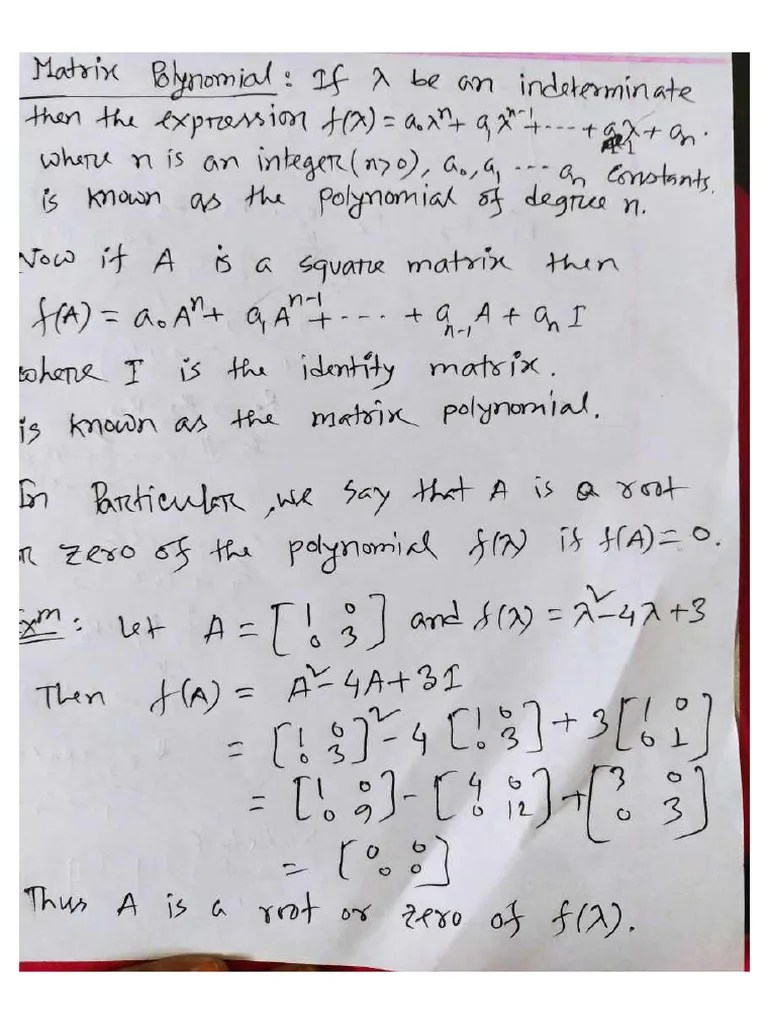 Matrix Polynomial: If λ be an indeterminate
then the expression f(λ) = a₀λⁿ + a₁λⁿ⁻¹ + ··· + aₙ₋₁λ + aₙ.
where n is an integer (n>0), a₀, a₁ ··· aₙ constants.
is known as the polynomial of degree n.
Now if A is a square matrix then
f(A) = a₀Aⁿ + a₁Aⁿ⁻¹ + ··· + aₙ₋₁A + aₙI
where I is the identity matrix.
is known as the matrix polynomial.
In Particular, we say that A is a root
r zero of the polynomial f(λ) if f(A) = 0.
Exᵐ: Let A = [1 0; 0 3] and f(λ) = λ² - 4λ + 3
Then f(A) = A² - 4A + 3I
= [1 0; 0 3]² - 4 [1 0; 0 3] + 3 [1 0; 0 1]
= [1 0; 0 9] - [4 0; 0 12] + [3 0; 0 3]
= [0 0; 0 0]
Thus A is a root or zero of f(λ).